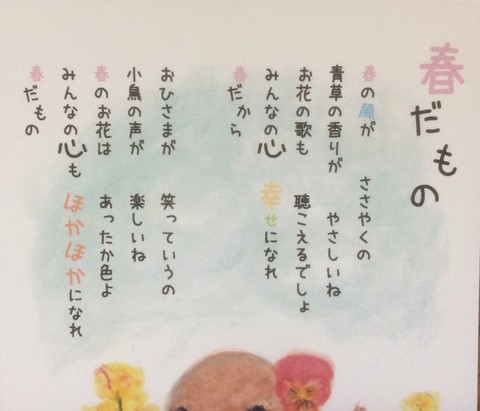 春だもの
春の風が ささやくの
青草の香りが やさしいね
お花の歌も 聴こえるでしょ
みんなの心 幸せになれ
春だから
おひさまが 笑っていうの
小鳥の声が 楽しいね
春のお花は あったか色よ
みんなの心も ほかほかになれ
春だもの